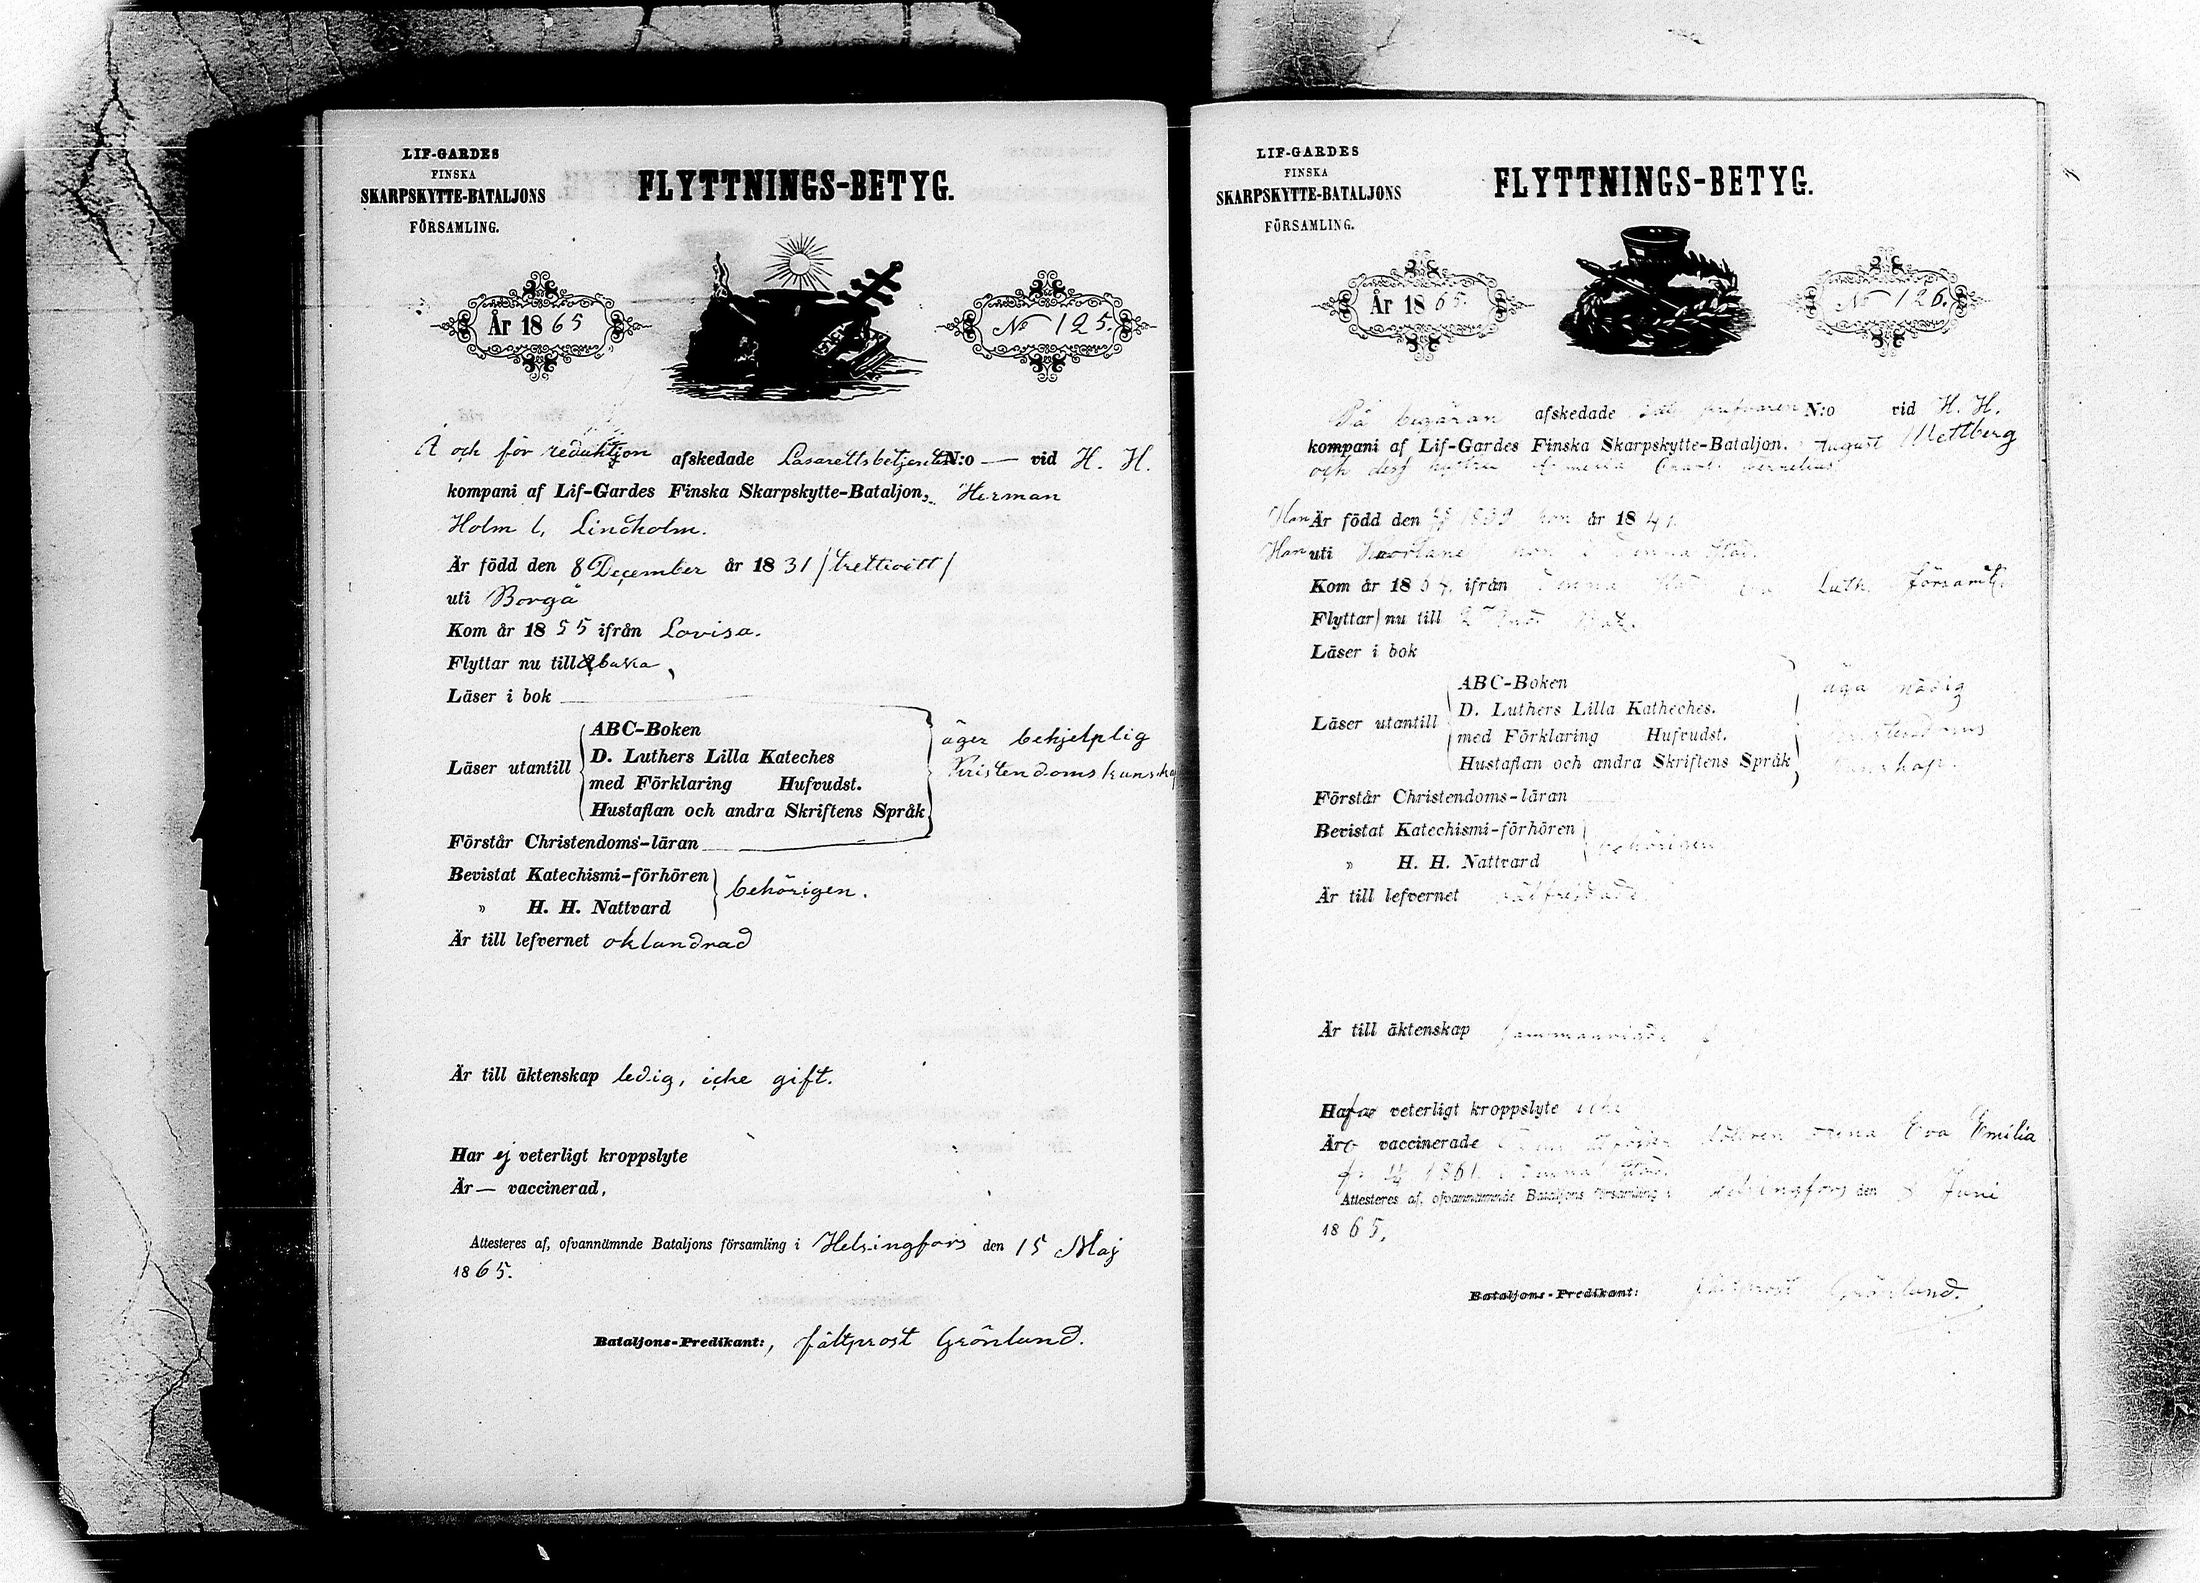 LIF-GARDES
FINSKA
SKARPSKYTTE-BATALJONS
FÖRSAMLING.
FLYTTNINGS-BETYG.
År 1865
No 125.
och för reduktjon afskedade Lasarettsbetjenten N:o — vid H. H.
kompani af Lif-Gardes Finska Skarpskytte-Bataljon, Herman
Holm l. Lindholm.
Är född den 8 December år 1831 /trettioett/
uti Borgå
Kom år 1855 ifrån Lovisa.
Flyttar nu till
Läser i bok
Läser utantill
ABC-Boken
D. Luthers Lilla Kateches
med Förklaring Hufvudst.
Hustaflan och andra Skriftens Språk
äger behjelplig
Kristendomskunskap
Förstår Christendoms-läran
Bevistat Katechismi-förhören
" H. H. Nattvard
behörigen.
Är till lefvernet oklandrad
Är till äktenskap ledig, icke gift.
Har ej veterligt kroppslyte
Är — vaccinerad,
Attesteres af, ofvannämnde Bataljons församling i Helsingfors den 15 Maj
1865.
Bataljons-Predikant:, fältprost Grönlund.
LIF-GARDES
FINSKA
SKARPSKYTTE-BATALJONS
FÖRSAMLING.
FLYTTNINGS-BETYG.
År 1865.
No 126.
På begäran afskedade N:o vid H. H.
kompani af Lif-Gardes Finska Skarpskytte-Bataljon. August Mettberg
och dess hustru
Han Är född den hon år 1841.
Han uti hon i denna stad.
Kom år 18 ifrån denna Luth. församl.
Flyttar nu till
Läser i bok
Läser utantill
ABC-Boken
D. Luthers Lilla Katheches.
med Förklaring Hufvudst.
Hustaflan och andra Skriftens Språk
äga nödig
kristendoms
kunskap.
Förstår Christendoms-läran
Bevistat Katechismi-förhören
" H. H. Nattvard
behörigen
Är till lefvernet
Är till äktenskap
Hafva veterligt kroppslyte icke
Är vaccinerade Eva Emilia
1861. i denna stad.
Attesteres af, ofvannämnde Bataljons församling i Helsingfors den 8 Juni
1865,
Bataljons-Predikant: fältprost Grönlund.